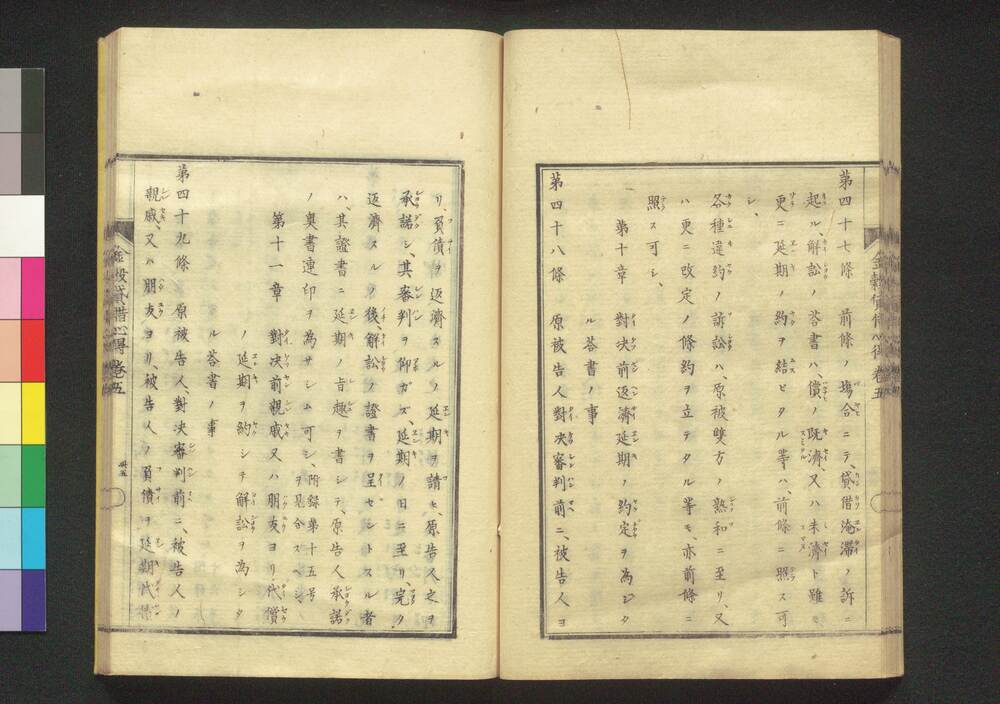 第四十七條 前條ノ塲合ニテ、貸借淹滯ノ訴ニ
起ル、解訟ノ答書ハ、償ノ既濟、又ハ未濟ト雖モ
更ニ延期ノ約ヲ結ビタル等ハ、前條ニ照ス可
シ、
各種違約ノ訴訟ハ、原被雙方ノ熟和ニ至リ、又
ハ更ニ改定ノ條約ヲ立テタル等モ、亦前條ニ
照ス可シ、
第十章 對决前返濟延期ノ約定ヲ為シタ
ル答書ノ事
第四十八條 原被告人對决審判前ニ、被告人ヨ
リ、負債ヲ返濟スルノ延期ヲ請ヒ、原告人之ヲ
承諾シ、其審判ヲ仰ガズ、延期ノ日ニ至リ、完ク
返濟スルノ後、解訟ノ證書ヲ呈セントスル者
ハ、其證書ニ延期ノ旨趣ヲ書シテ、原告人承諾
ノ奧書連印ヲ為サシム可シ、附録第十五号
ヲ見合スベシ、
第十一章 對决前親戚又ハ朋友ヨリ代償
ノ延期ヲ約シテ解訟ヲ為シタ
ル答書ノ事
第四十九條 原被告人、對决審判前ニ、被告人ノ
親戚、又ハ朋友ヨリ、被告人ノ負債ヲ延期代償
卷五
卅五